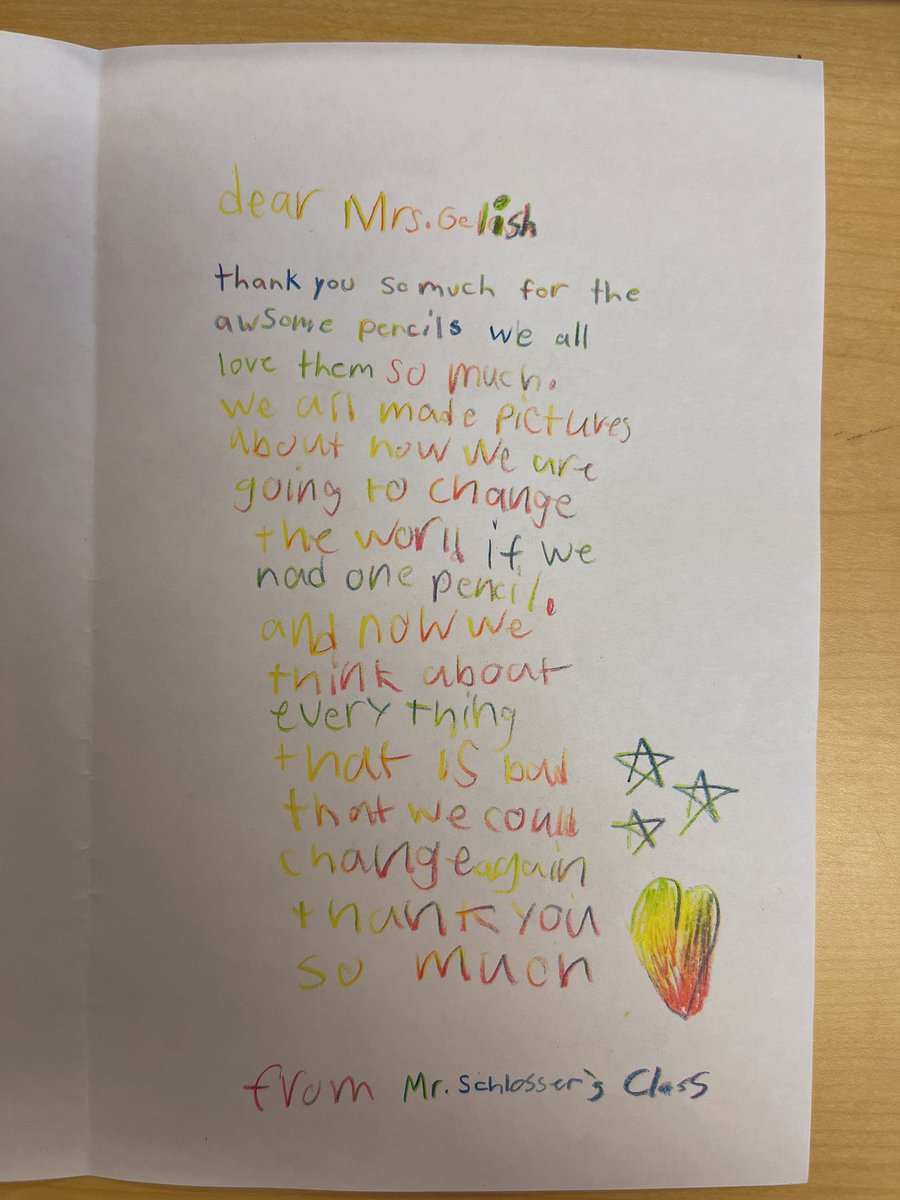 dear Mrs. Gelish
thank you so much for the
awsome pencils we all
love them so much.
we all made pictures
about how we are
going to change
the world if we
had one pencil.
and now we
think about
every thing
that is bad
that we could
change again
thank you
so much
from Mr. Schlosser's Class